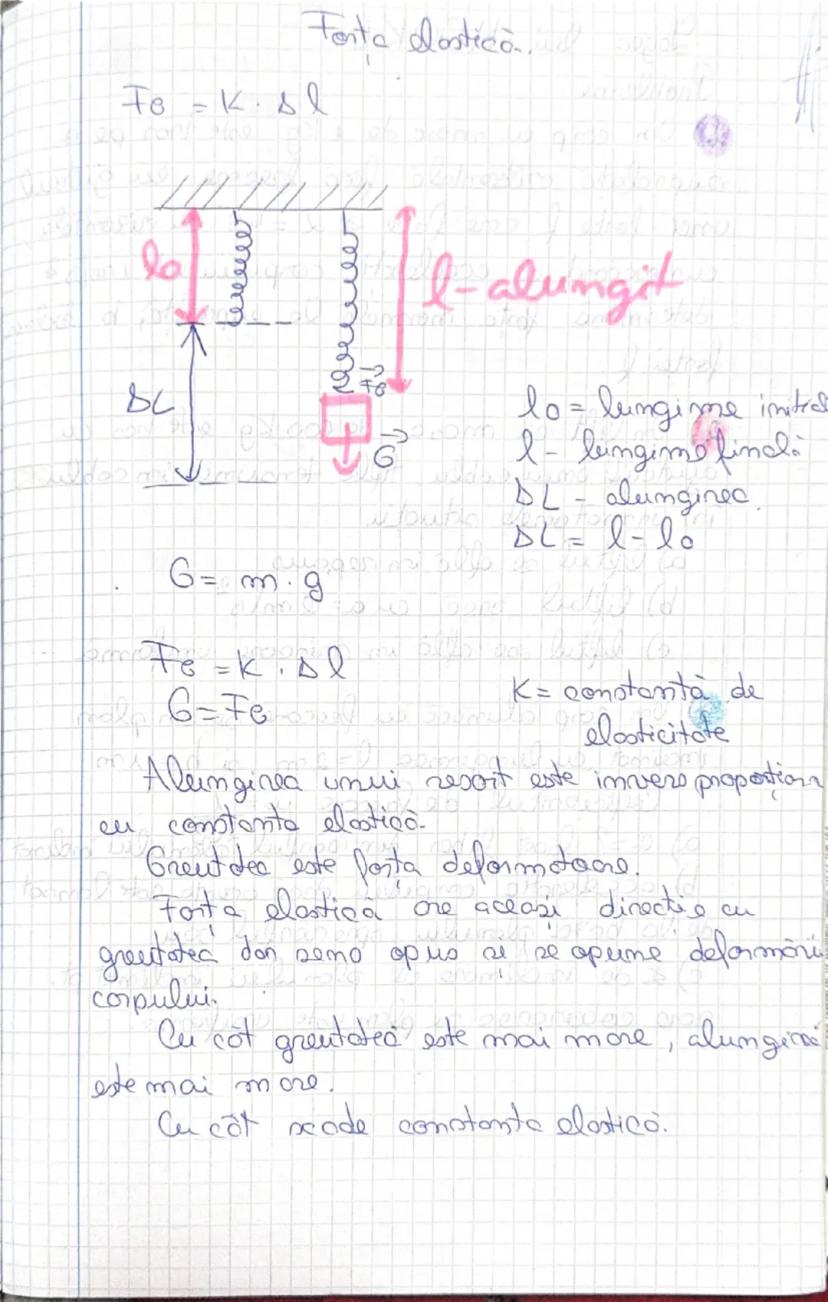 Forța elastică.
Fe = K · Δl
l0
l-alungit
ΔL
Fe
G
l0 = lungime inițial
l - lungime finală
ΔL - alungirea.
ΔL = l - l0
G = m · g
Fe = K · Δl
G = Fe
K = constantă de
elasticitate
Alungirea unui resort este invers proporțion
cu constanta elastică.
Greutatea este forța deformatoare.
Forța elastică are aceași direcție cu
greutatea dar sens opus și se opune deformării
corpului.
Cu cât greutatea este mai mare, alungirea
este mai mare.
Cu cât scade constanta elastică.